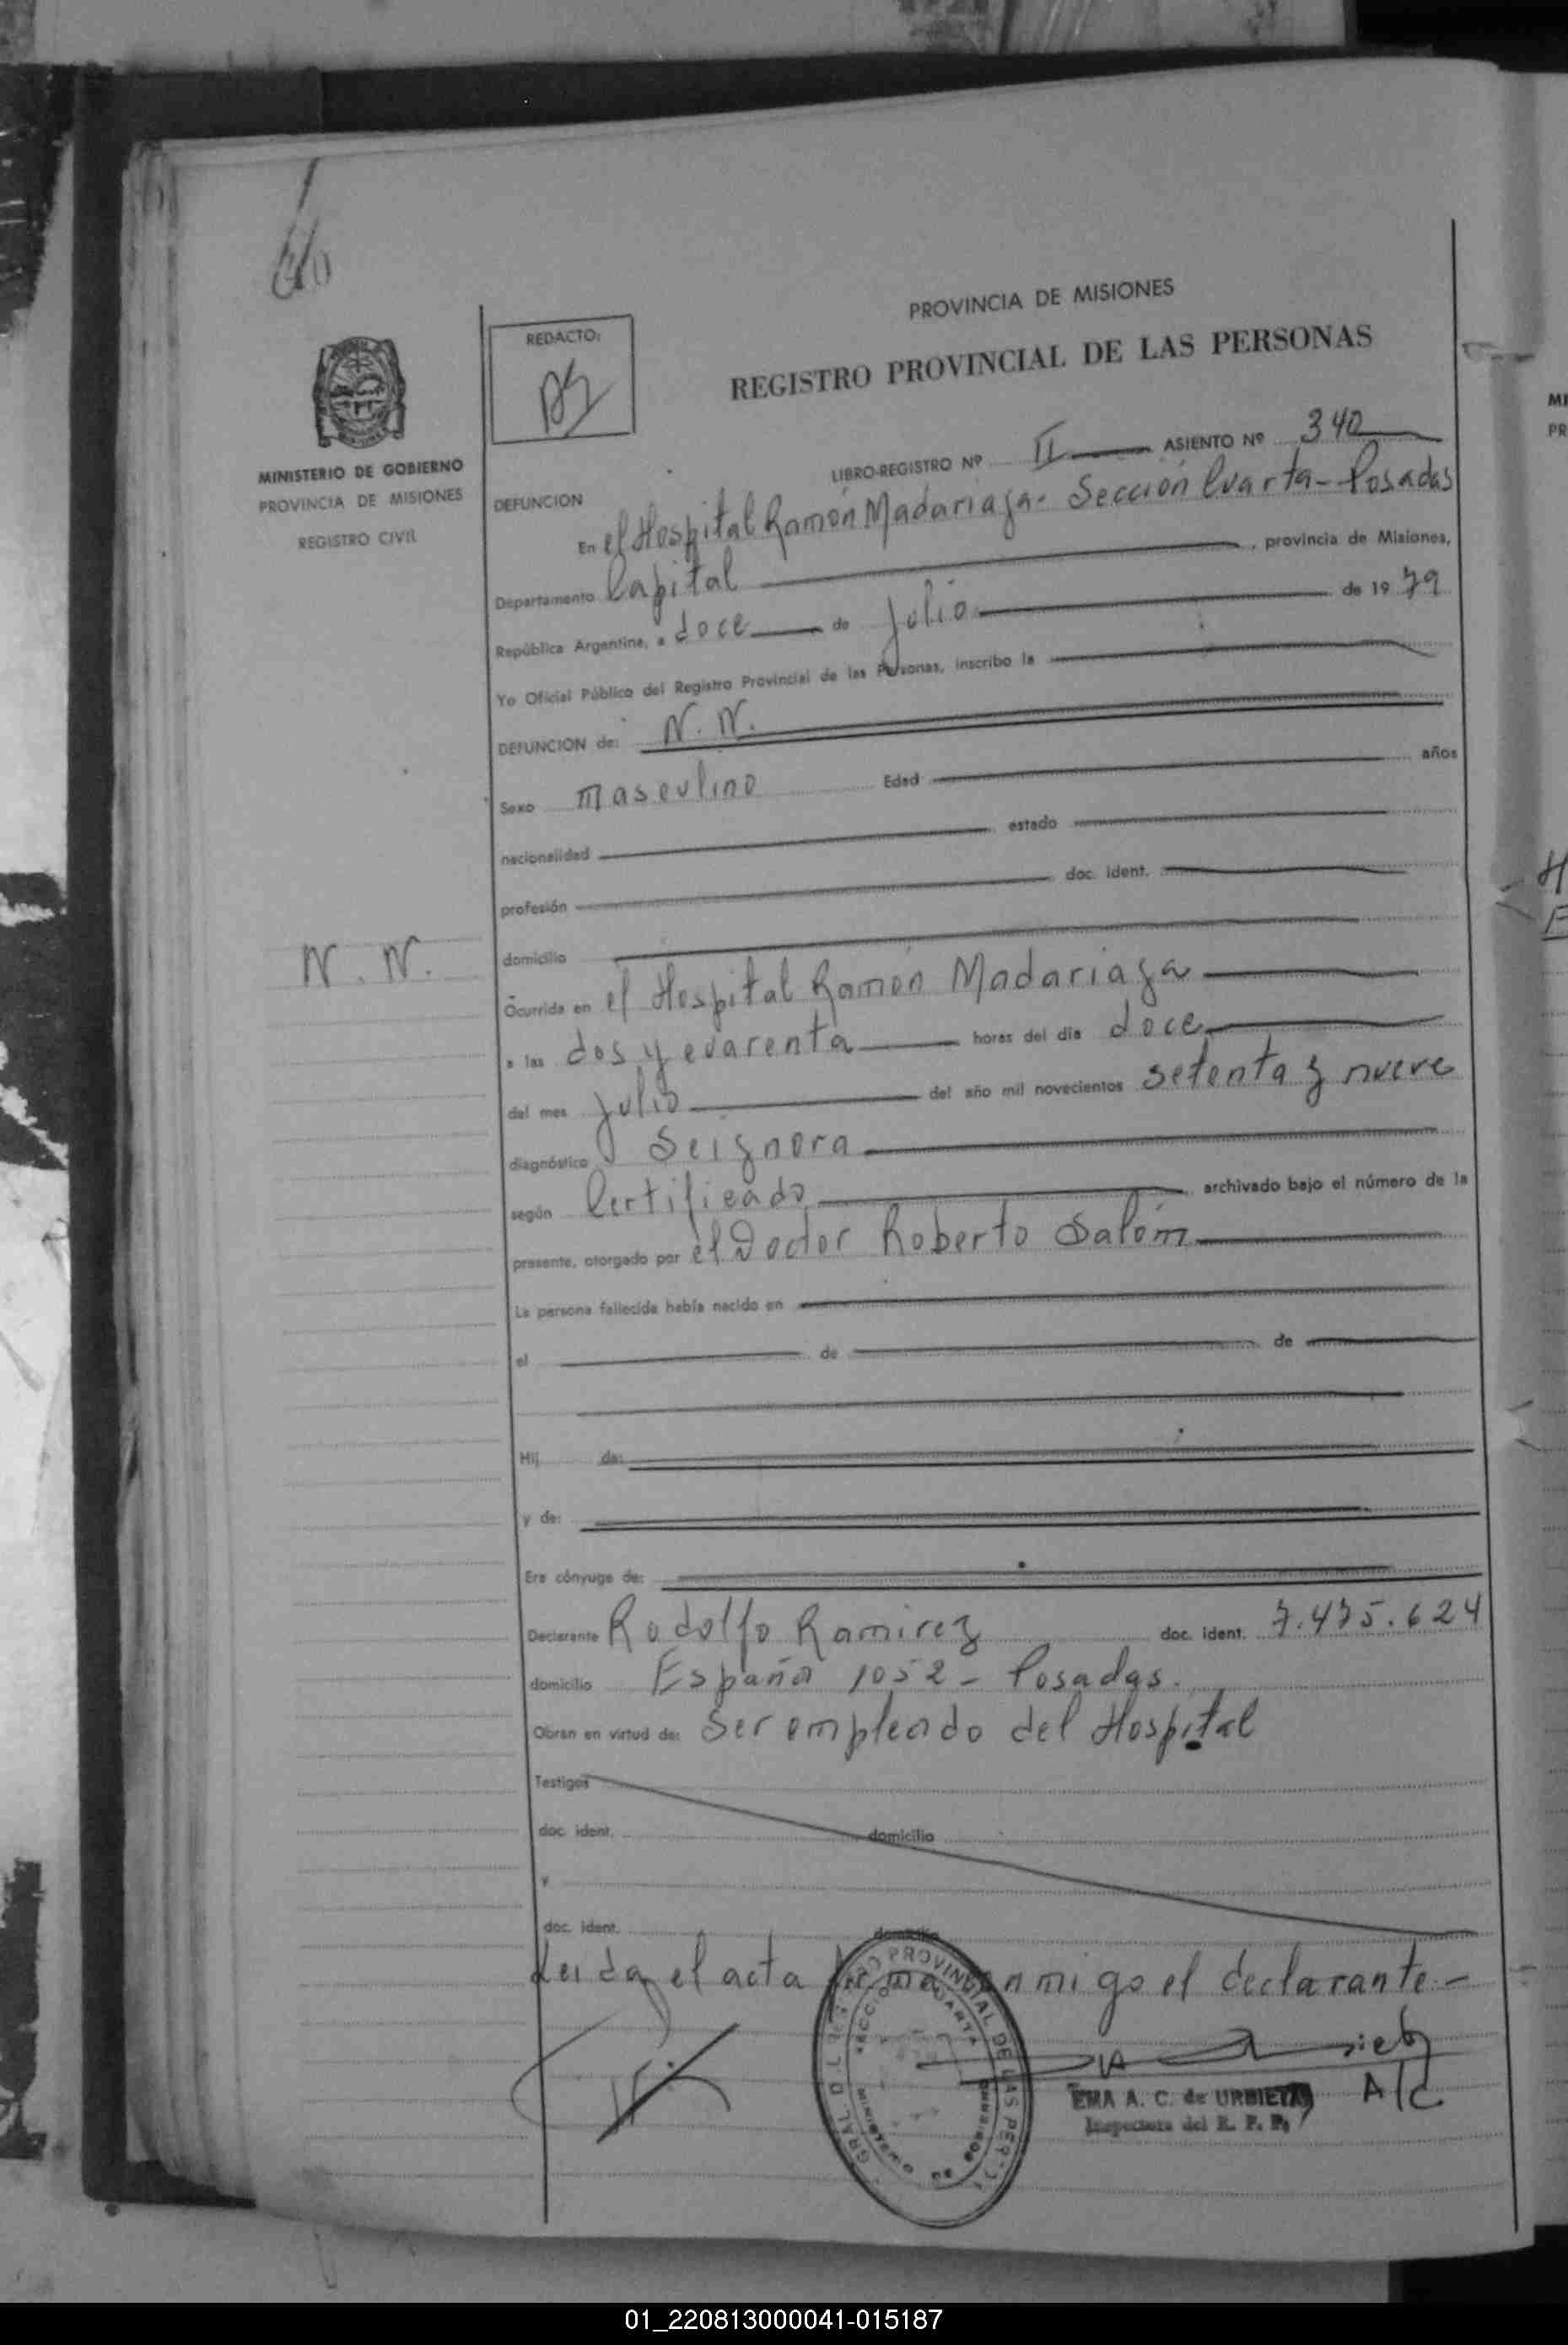 REDACTO:
PROVINCIA DE MISIONES
REGISTRO PROVINCIAL DE LAS PERSONAS
MINISTERIO DE GOBIERNO
PROVINCIA DE MISIONES
REGISTRO CIVIL
LIBRO-REGISTRO Nº II ASIENTO Nº 340
DEFUNCION
En el Hospital Ramón Madariaga - Sección Cuarta - Posadas
Departamento Capital, provincia de Misiones,
República Argentina, a doce de Julio de 19 79
Yo Oficial Público del Registro Provincial de las Personas, inscribo la
DEFUNCION de: N. N.
Sexo masculino Edad años
nacionalidad estado
profesión doc. ident.
N. N.
domicilio
Ocurrida en el Hospital Ramón Madariaga
a las dos y cuarenta horas del día doce
del mes Julio del año mil novecientos setenta y nueve
diagnóstico Seignora
según Certificado archivado bajo el número de la
presente, otorgado por el Doctor Roberto Salóm
La persona fallecida había nacido en
el de de
Hij de:
y de:
Era cónyuge de:
Declarante Rodolfo Ramirez doc. ident. 7.475.624
domicilio España 1052 - Posadas.
Obran en virtud de: Ser empleado del Hospital
Testigos
doc. ident. domicilio
y
doc. ident. domicilio
Leida el acta firma conmigo el declarante -
A/C
EMA A. C. de URBIETA
Inspectora del R. P. P.
01_220813000041-015187